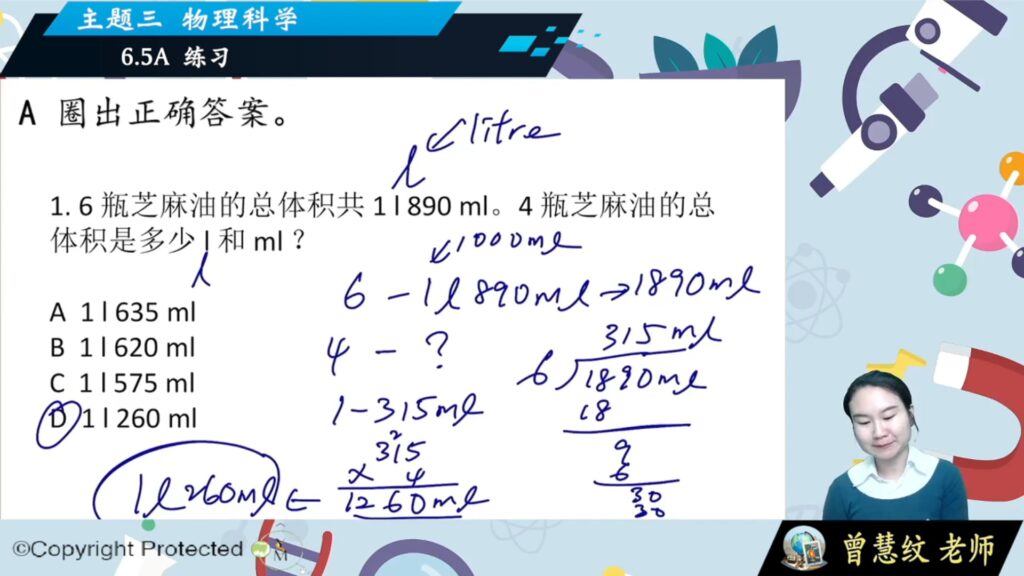 主题三 物理科学
6.5A 练习
A 圈出正确答案。
litre
l
1. 6 瓶芝麻油的总体积共 1 l 890 ml。4 瓶芝麻油的总
体积是多少 l 和 ml ?
l
1000ml
6 - 1l 890ml → 1890ml
4 - ?
1 - 315ml
315ml
6 1890ml
18
9
6
30
30
A 1 l 635 ml
B 1 l 620 ml
C 1 l 575 ml
D 1 l 260 ml
2
315
x 4
1260ml
1l 260ml =
©Copyright Protected
曾慧纹 老师